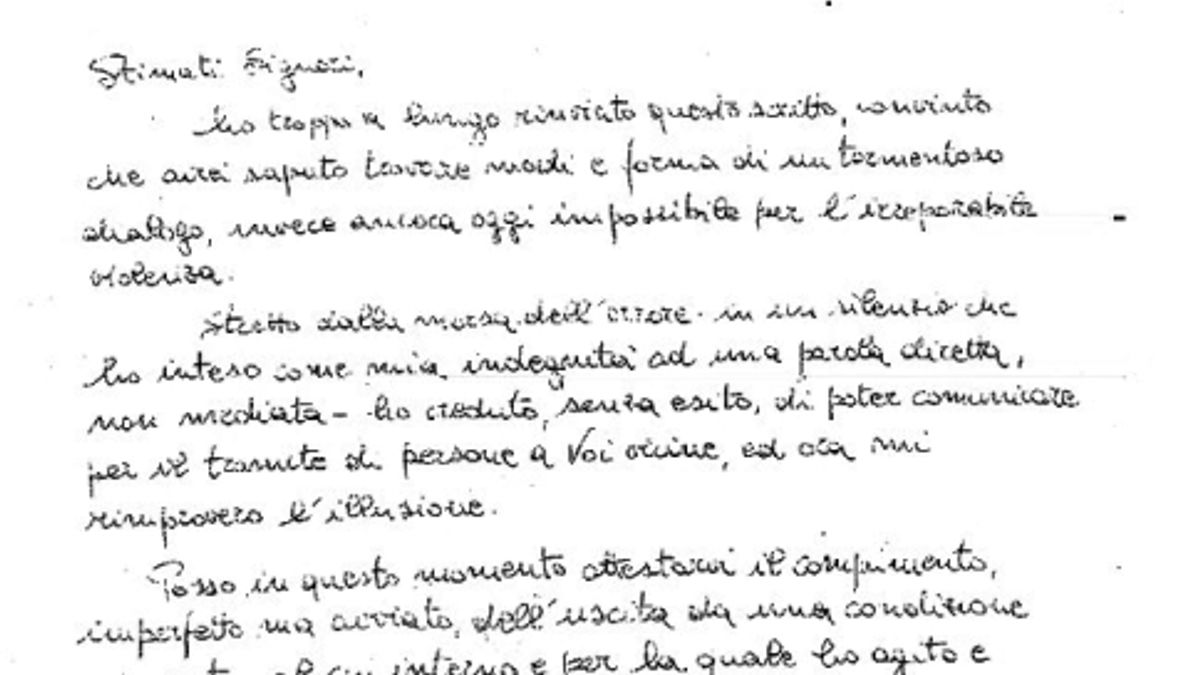 Stimati Signori,
ho troppo a lungo rinviato questo scritto, convinto
che avrei saputo trovare modi e forma di un tormentoso
dialogo, invece ancora oggi impossibile per l'irreparabile
violenza.
Stretto dalla morsa dell'errore - in un silenzio che
ho inteso come mia indegnità ad una parola diretta,
non mediata - ho creduto, senza esito, di poter comunicare
per il tramite di persone a Voi vicine, ed ora mi
rimprovero l'illusione.
Posso in questo momento attestarvi il compimento,
imperfetto ma avviato, dell'uscita da una condizione
interno e per la quale ho agito e